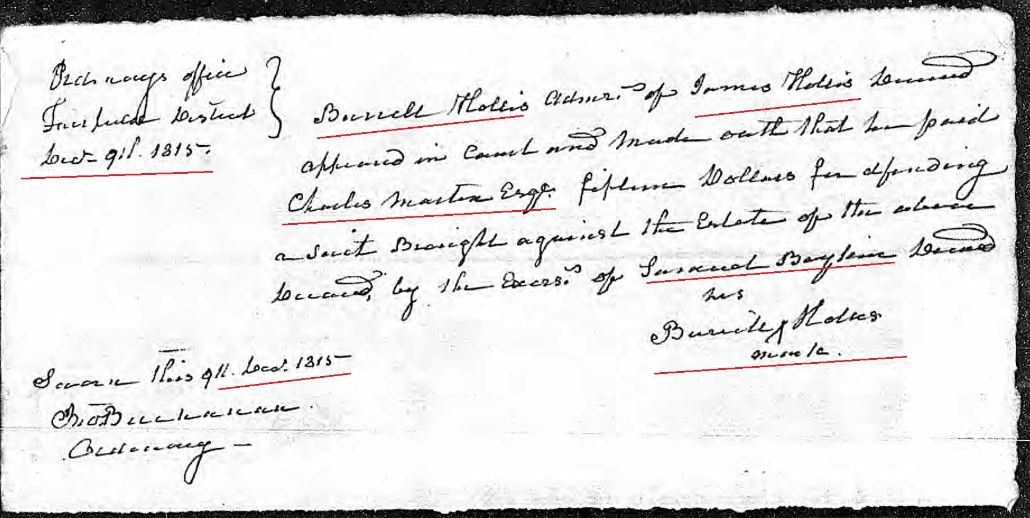 Ordinarys office
Fairfield District
Decr 9th. 1815.
Burrell Hollis Admr. of James Hollis Deceased
appeared in Court and made oath that he paid
Charles Martin Esqr. fifteen Dollars for defending
a suit Brought against the Estate of the above
Deceased, by the Exers. of Samuel Boykin Deceased
his
Burrell X Hollis
mark.
Sworn this 9th. Decr. 1815
Jno Buchanan
Ordinary